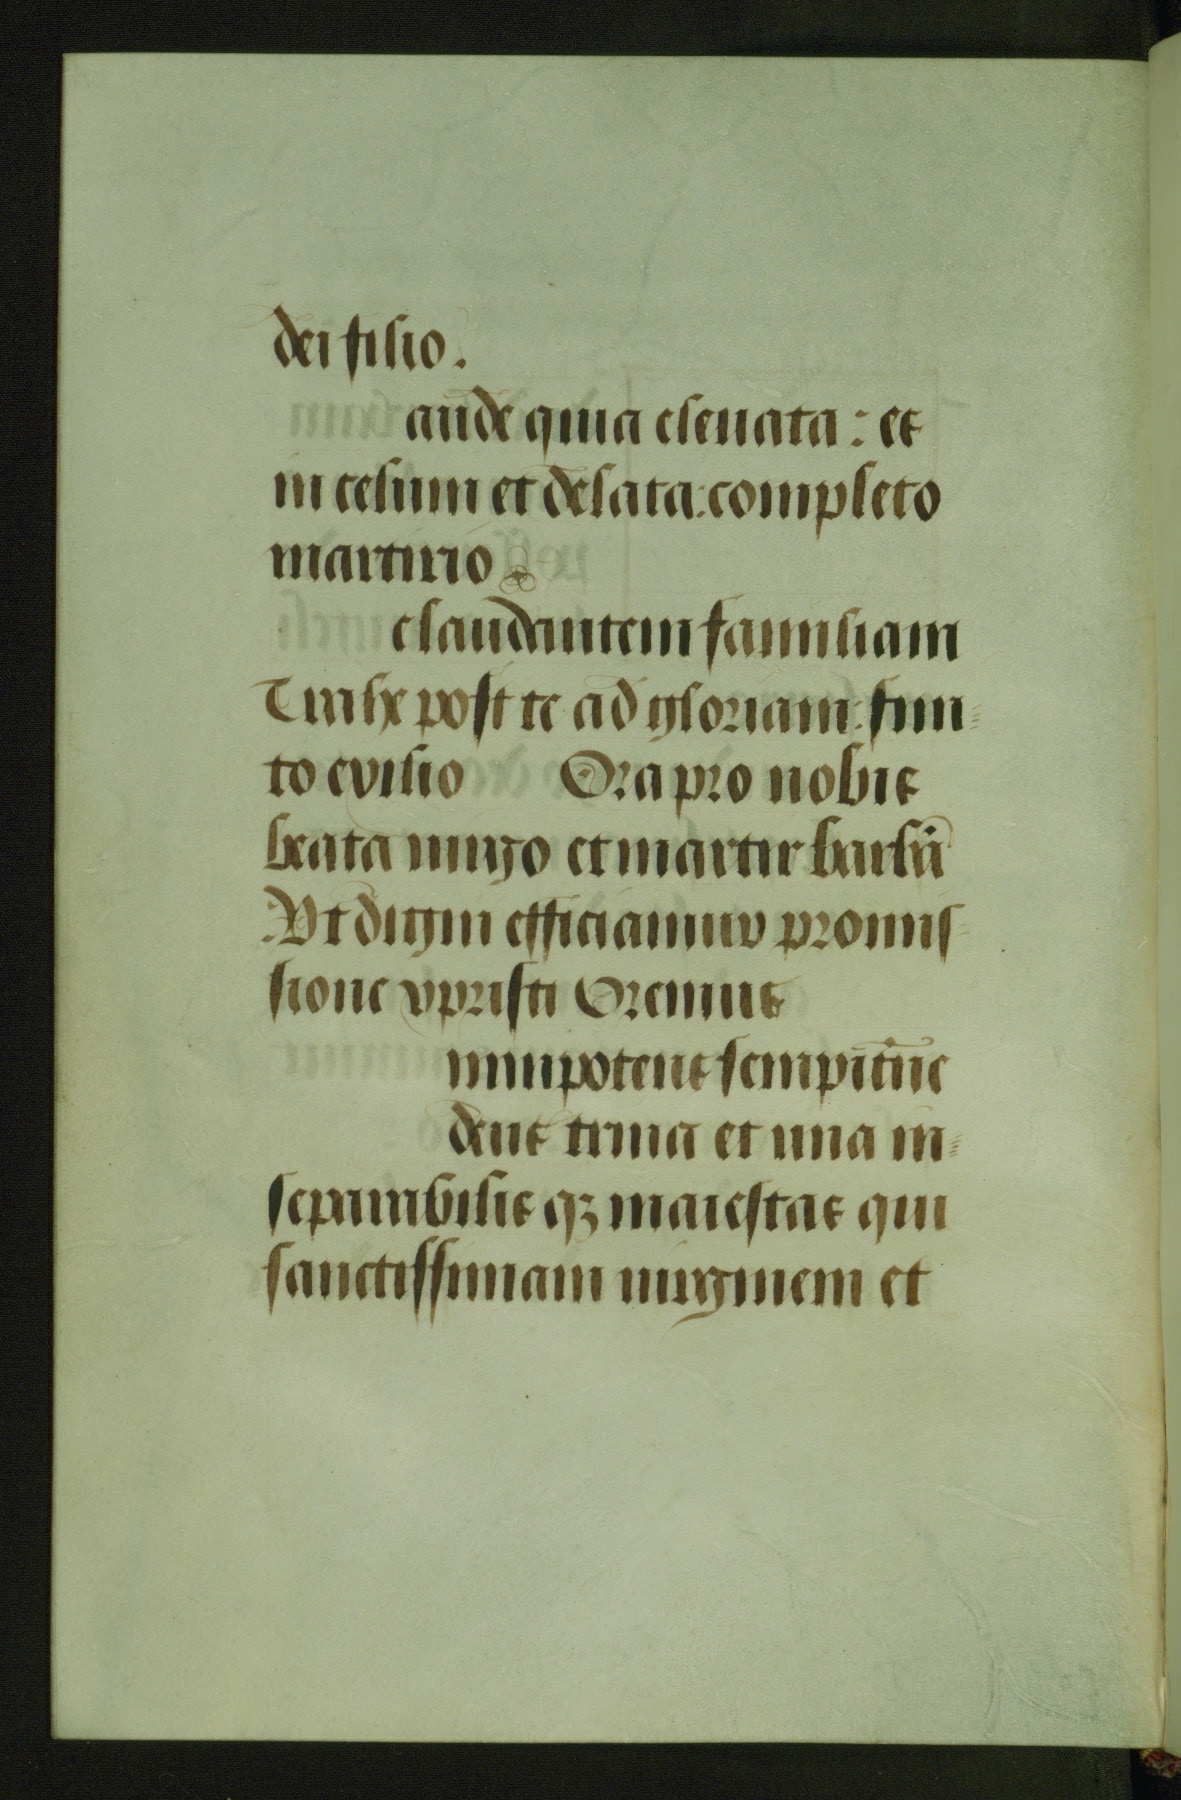 dei filio.
aude quia eleuata: et
in celum et delata: completo
martirio
claudantem familiam
Trahe post te ad gloriam: fini-
to exilio Ora pro nobis
beata uirgo et martir barbā
Vt digni efficiamur promis
sione xpristi Oremus
mnipotens sempitn̄e
deus trina et una in-
separabilis qꝫ maiestas qui
sanctissimam uirginem et